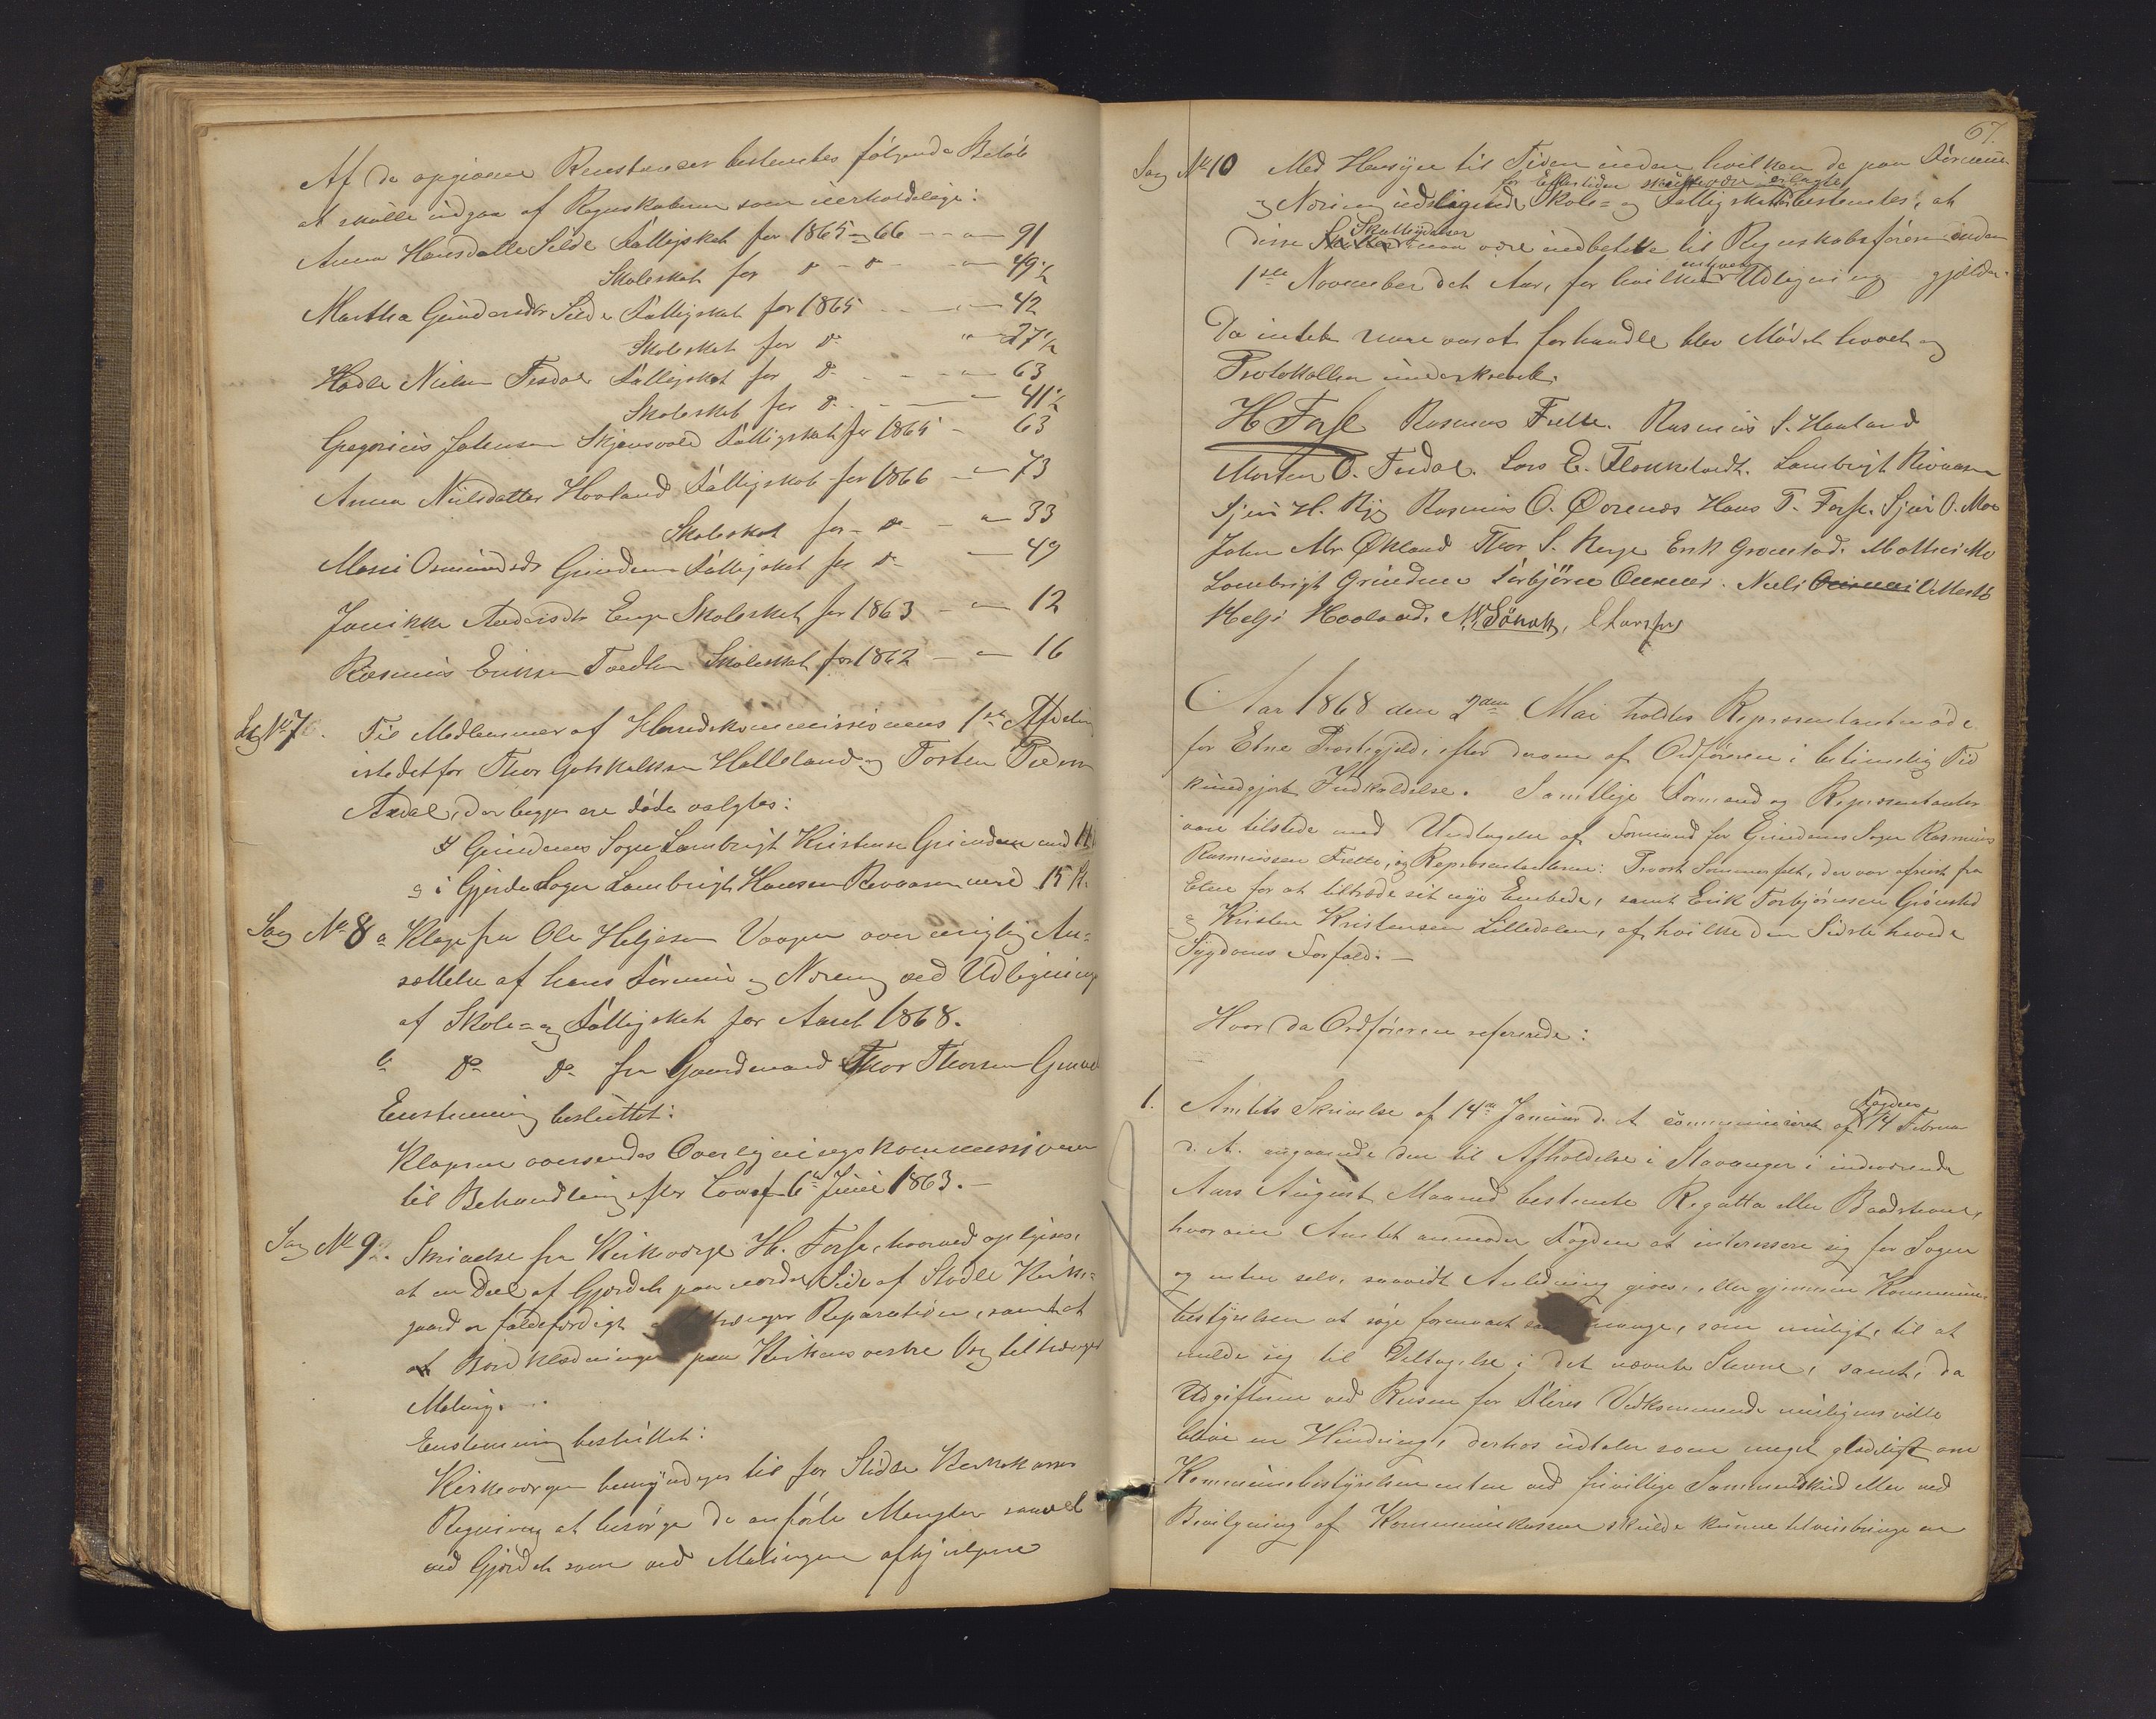 Af de opgivne Restanser bestemtes følgende Beløb
at skulle udgaa af Regnskaberne som uerholdelige:
Anna Hansdatter Silde Fattigskat for 1865 og 66 - - " - 91
Skoleskat for do - do - " - 49 1/2
Martha Gundersdtr Silde Fattigskat for 1865 - - " - 42
Skoleskat for do " - 27 1/2
Hadle Nielsen Tesdal Fattigskat for do - - - " - 63
Skoleskat for do - - " 41 1/2
Gregorius Johnsen Skjensvold Fattigskat for 1865 - 63
Anna Nielsdatter Haaland Fattigskat for 1866 - " - 73
Skoleskat for - do - " - 33
Mari Osmundsdr Grindem Fattigskat for do - 49
Jonikke Andersdtr Enge Skoleskat for 1863 - " - 12
Rasmus Eriksen Tvedten Skoleskat for 1862 - " - 16
Sag No 7. Til Medlemmer af Herredskommissionens 1ste Afdeling
istedetfor Thor Gotskalksen Halleland og Torsten
Axdal, der begge ere døde valgtes:
I Grindems Sogn Lambrigt Kristensen Grindem med
og i Gjerde Sogn Lambrigt Hansen Revaasen med 15 St.
Sag No 8 a Klage fra Ole Heljesen Vaagen over urigtig An-
sættelse af hans Formue og Næring ved Udligningen
af Skole- og Fattigskat for Aaret 1868.
b do do fra Gaardmand Thor Thorsen
Enstemmig besluttet:
Klagerne oversendes Overligningskommissionen
til Behandling efter Lov af 6te Juni 1863. -
Sag No 9. Skrivelse fra Kirkeværge H. Fosse, hvorved oplyses,
at en Deel af Gjærdet paa nordre Side af Stødle Kirke-
gaard er faldefærdigt Reparation, samt at
at Bordklædningen paa Kirkens vestre Væg tiltrænger
Maling.
Enstemmig besluttet:
Kirkeværgen bemyndiges til for Stødle Kirkekasses
Regning at besørge de anførte Mangler saavel
ved Gjærdet som ved Malingen afhjulpne
67.
Sag No 10 Med Hensyn til Tiden inden hvilken de paa Formue
for Eftertiden skulle være erlagte
og Næring udlignede Skole- og Fattigskatter bestemtes, at
Skatteydelser
disse maa være indbetalte til Regnskabsføreren inden
enhver
1ste November det Aar, for hvilket Udligning gjælder.
Da intet mere var at forhandle blev Mødet hævet og
Protokollen underskrevet.
H Fosse Rasmus Frette. Rasmus S. Haaland
Morten O. Tesdal. Lars E. Flokketvedt. Lambrigt Rivaasen
Sjur H. Rygg Rasmus O. Ørenæs Hans T. Fosse. Sjur O. Moe
John Mr Økland Thor S. Berge Erik Grønstad. Mathias Mo
Lambrigt Grindem Torbjørn Onnæs. Niels
Helje Haaland. N. Sørhok,
Aar 1868 den 2den Mai holdtes Representantmøde
for Etne Præstegjeld, efter denne af Ordføreren i betimelig Tid
kundgjort Indkaldelse. Samtlige Formænd og Representanter
vare tilstede med Undtagelse af Formand for Grindems Sogn Rasmus
Rasmussen Frette, og Representanterne: Provst Sommerfelt, der var afreist fra
Etne for at tiltræde sit nye Embede, samt Erik Torbjørnsen Grønstad
og Kristen Kristensen Lilledalen, af hvilke den Sidste havde
Sygdoms Forfald. -
Hvor da Ordføreren refererede:
1. Amtets Skrivelse af 14de Januar d. A. communiceret af
Fogden
14 Februar
d. A. angaaende den til Afholdelse i Stavanger i indeværende
Aars August Maaned bestemte Regatta eller Baadstevne,
hvorom Amtet anmoder Fogden at interessere sig for Sagen
og enten selv, saavidt Anledning gives, eller gjennem Kommune-
bestyrelsen at søge formaaet saa mange, som muligt, til at
melde sig til Deltagelse i det nævnte Stevne, samt, da
Udgifterne ved Reisen for Fleres Vedkommende muligens ville
blive en Hindring, derhos udtaler som meget glædeligt om
Kommunebestyrelsen enten ved frivillige Sammenskud eller ved
Bevilgning af Kommunekassen skulde kunne tilveiebringe en